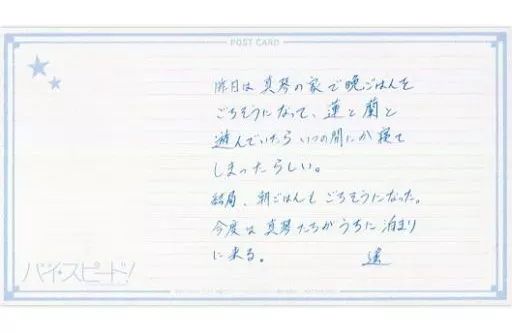 POST CARD
昨日は真琴の家で晩ごはんを
ごちそうになって、蓮と蘭と
遊んでいたらいつの間にか寝て
しまったらしい。
結局、朝ごはんもごちそうになった。
今度は真琴たちがうちに泊まり
に来る。
遙
ハイ☆スピード!